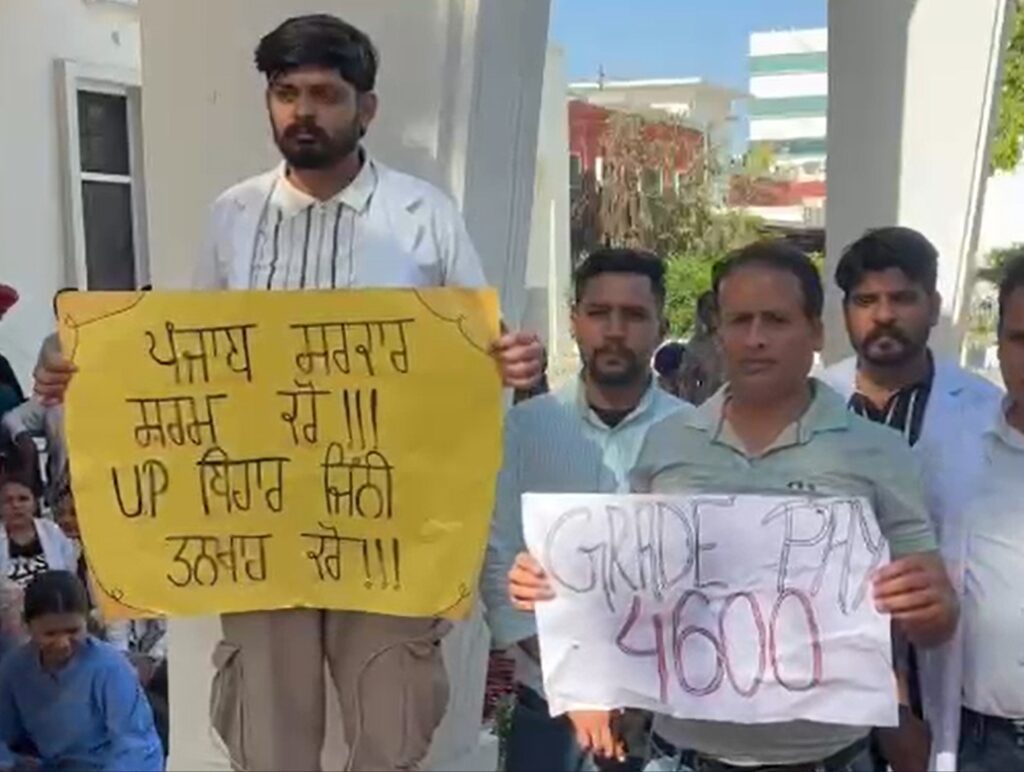 ਪੰਜਾਬ ਸਰਕਾਰ
ਸ਼ਰਮ ਕਰੋ !!!
UP ਬਿਹਾਰ ਜਿੰਨੀ
ਤਨਖਾਹ ਕਰੋ !!!
GRADE PAY
4600